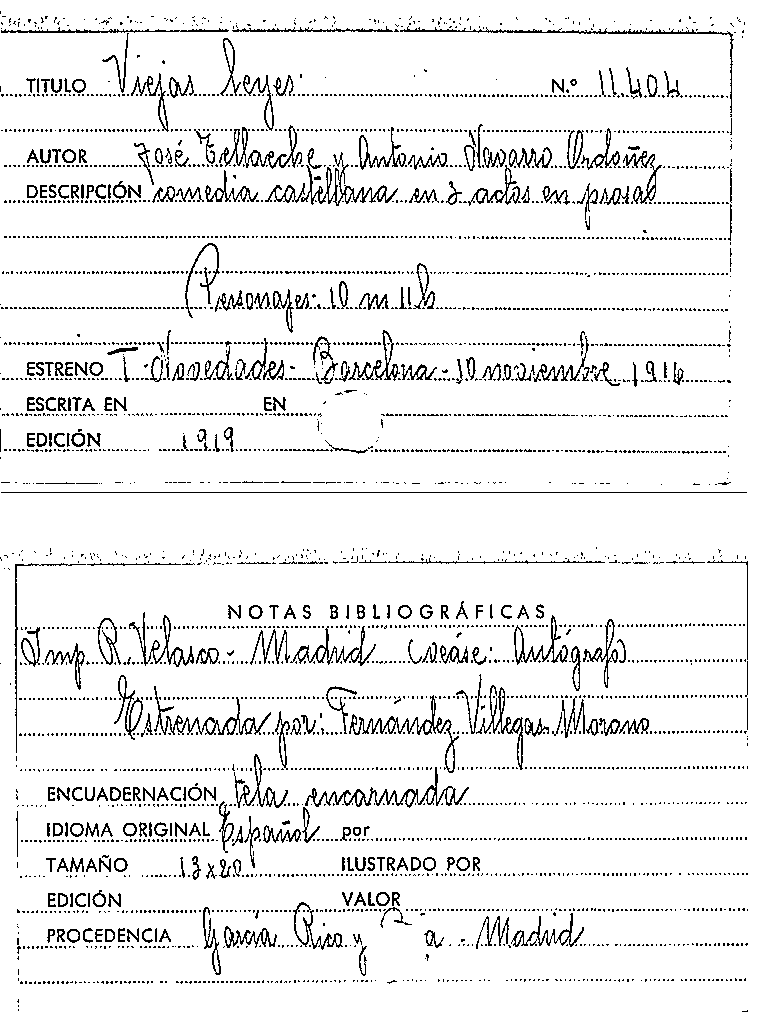 TITULO Viejas leyes. N.º 11.404
AUTOR José Tellaeche y Antonio Navarro Ordoñez
DESCRIPCIÓN comedia castellana en 3 actos en prosa
Personajes. 10 m 11 h
ESTRENO T. Novedades - Barcelona - 10 noviembre 1916
ESCRITA EN EN
EDICIÓN 1919
NOTAS BIBLIOGRÁFICAS
Imp. R. Velasco - Madrid (veáse: Autógrafo
Estrenada por: Fernández, Villegas, Morano
ENCUADERNACIÓN tela encarnada
IDIOMA ORIGINAL Español por
TAMAÑO 13 x 20 ILUSTRADO POR
EDICIÓN VALOR
PROCEDENCIA García Rico y - Madrid